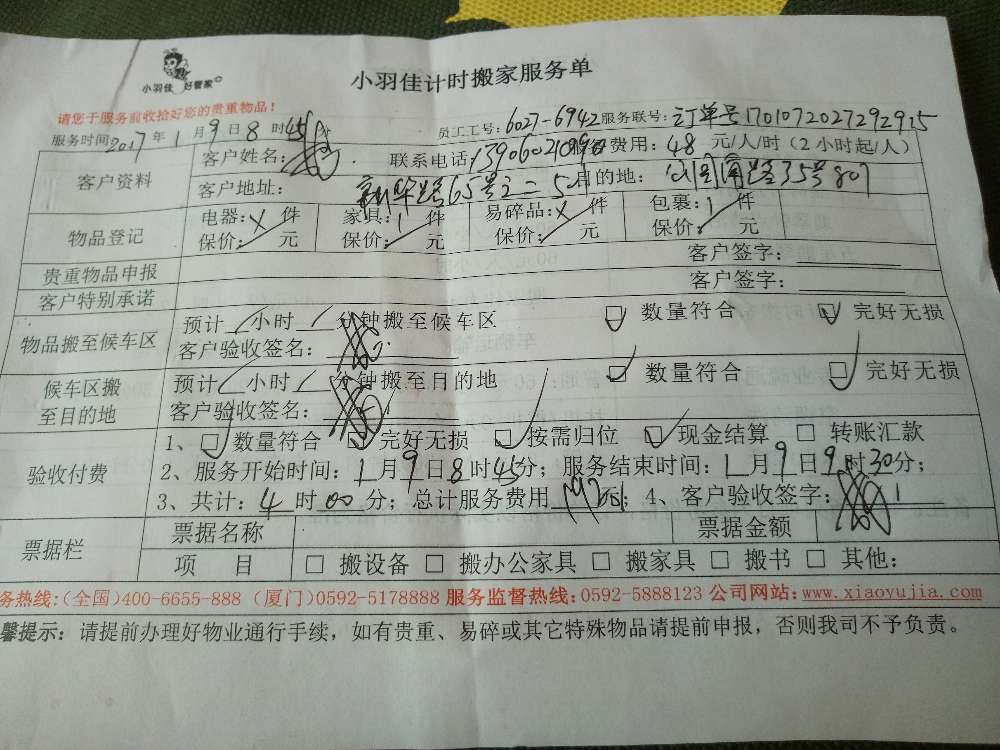 小羽佳 好管家
小羽佳计时搬家服务单
请您于服务前收拾好您的贵重物品!
服务时间2017年1月9日8时45分 员工工号:6027-6942 服务联号:订单号1701072027292915
客户资料 客户姓名: 联系电话: 费用:48元/人/时(2小时起/人)
客户地址: 新华路65号之二5 目的地: 路35号807
物品登记 电器:X件 家具:1件 易碎品:X件 包裹:1件
保价: 元 保价: 元 保价: 元 保价: 元
贵重物品申报 客户签字:
客户特别承诺 客户签字:
物品搬至候车区 预计/小时/分钟搬至候车区 ☑ 数量符合 ☑ 完好无损
客户验收签名:
候车区搬至目的地 预计/小时/分钟搬至目的地 ☑ 数量符合 ☑ 完好无损
客户验收签名:
验收付费 1、☑ 数量符合 ☑ 完好无损 ☑ 按需归位 ☑ 现金结算 □ 转账汇款
2、服务开始时间:1月9日8时45分;服务结束时间:1月9日9时30分;
3、共计:4时00分;总计服务费用 元;4、客户验收签字:
票据栏 票据名称 票据金额
项 目 □ 搬设备 □ 搬办公家具 □ 搬家具 □ 搬书 □ 其他:
务热线:(全国)400-6655-888 (厦门)0592-5178888 服务监督热线:0592-5888123 公司网站:www.xiaoyujia.com
馨提示:请提前办理好物业通行手续,如有贵重、易碎或其它特殊物品请提前申报,否则我司不予负责。